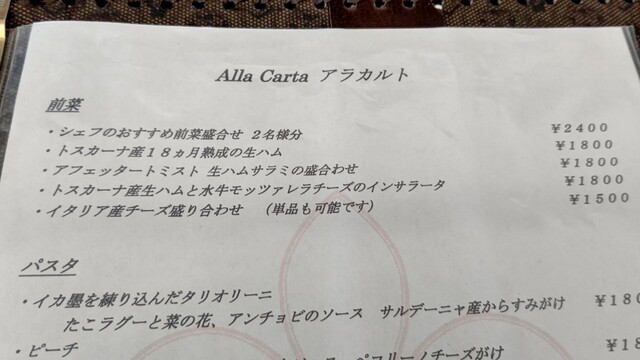 Alla Carta アラカルト
前菜
・シェフのおすすめ前菜盛合せ 2名様分 ¥2400
・トスカーナ産18ヵ月熟成の生ハム ¥1800
・アフェッタートミスト 生ハムサラミの盛合わせ ¥1800
・トスカーナ産生ハムと水牛モッツァレラチーズのインサラータ ¥1800
・イタリア産チーズ盛り合わせ （単品も可能です） ¥1500
パスタ
・イカ墨を練り込んだタリオリーニ
たこラグーと菜の花、アンチョビのソース サルデーニャ産からすみがけ ¥180
・ピーチ ¥18
ペコリーノチーズがけ